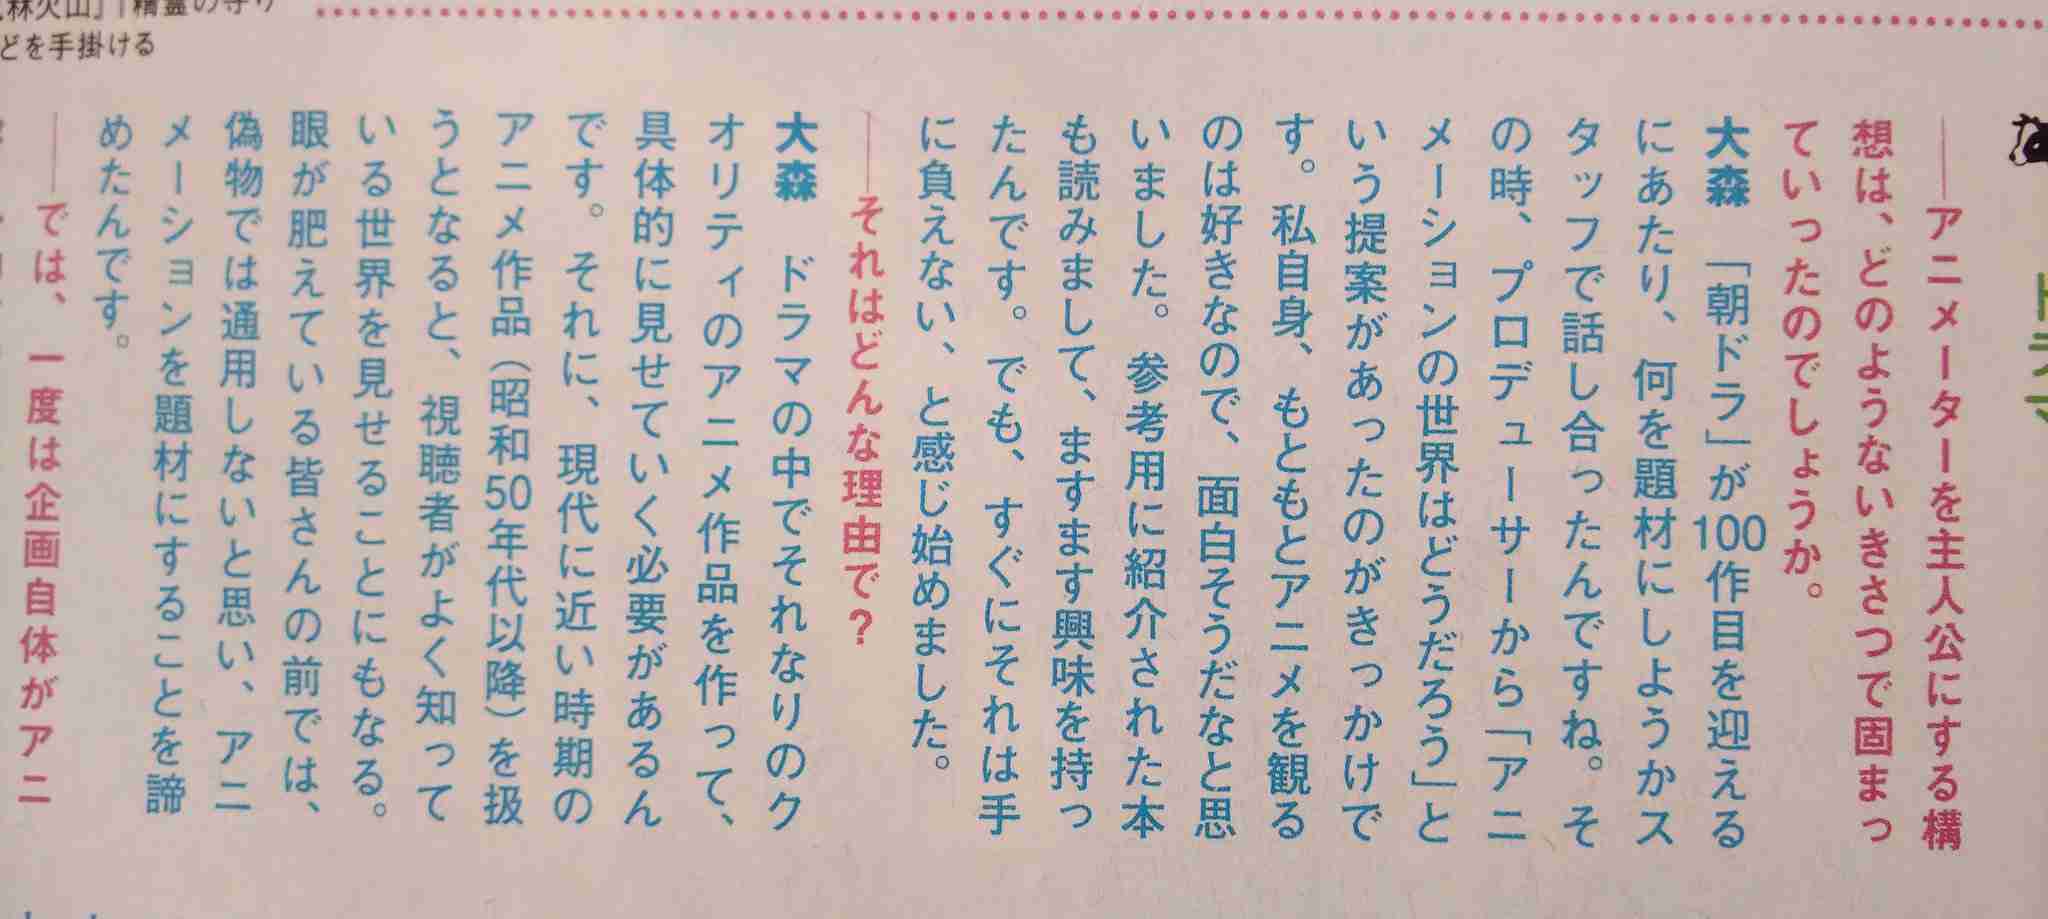 林火山」「精霊の守り
どを手掛ける
ドラマ
――アニメーターを主人公にする構
想は、どのようないきさつで固まっ
ていったのでしょうか。
大森　「朝ドラ」が100作目を迎える
にあたり、何を題材にしようかス
タッフで話し合ったんですね。そ
の時、プロデューサーから「アニ
メーションの世界はどうだろう」と
いう提案があったのがきっかけで
す。私自身、もともとアニメを観る
のは好きなので、面白そうだなと思
いました。参考用に紹介された本
も読みまして、ますます興味を持っ
たんです。でも、すぐにそれは手
に負えない、と感じ始めました。
――それはどんな理由で？
大森　ドラマの中でそれなりのク
オリティのアニメ作品を作って、
具体的に見せていく必要があるん
です。それに、現代に近い時期の
アニメ作品（昭和50年代以降）を扱
うとなると、視聴者がよく知って
いる世界を見せることにもなる。
眼が肥えている皆さんの前では、
偽物では通用しないと思い、アニ
メーションを題材にすることを諦
めたんです。
――では、一度は企画自体がアニ